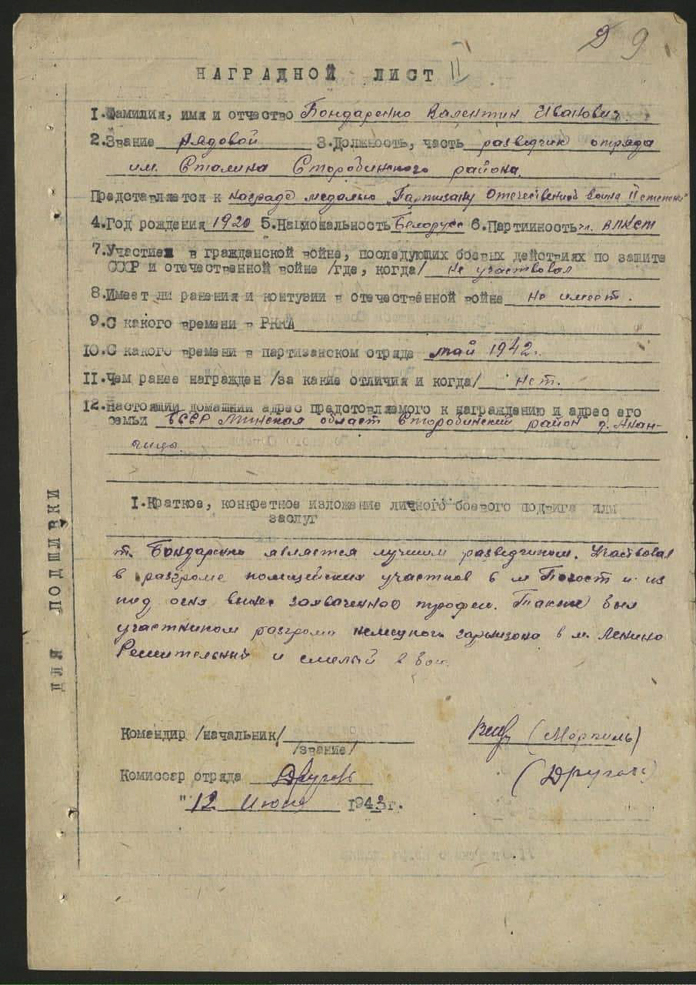 9
НАГРАДНОЙ ЛИСТ II
1. Фамилия, имя и отчество Бондаренко Валентин Иванович
2. Звание рядовой 3. Должность, часть разведчик отряда
им. Сталина Старобинского района.
Представляется к награде медалью "Партизану Отечественной войны II степени"
4. Год рождения 1920 5. Национальность Белорусс 6. Партийность чл. ВЛКСМ
7. Участием в гражданской войне, последующих боевых действиях по защите
СССР и отечественной войне /где, когда/ не участвовал
8. Имеет ли ранения и контузии в отечественной войне не имеет.
9. С какого времени в РККА
10. С какого времени в партизанском отряде май 1942 г.
11. Чем ранее награжден /за какие отличия и когда/ нет.
12. Настоящий домашний адрес предотовляемого к награждению и адрес его
семьи БССР Минская област Старобинский район д.
I. Краткое, конкретное изложение личного боевого подвига или
заслуг
т. Бондаренко является лучшим разведчиком. Участвовал
в разгроме полицейских участков в м Погост и из
под огня вынес захваченное трофеи. Также был
участником разгрома немецкого гарнизона в м. Ленино
Решительный и смелый в бою.
Командир /начальник/
/звание/
Комиссар отряда
"12 Июня 1943 г.
ДЛЯ ПОДШИВКИ